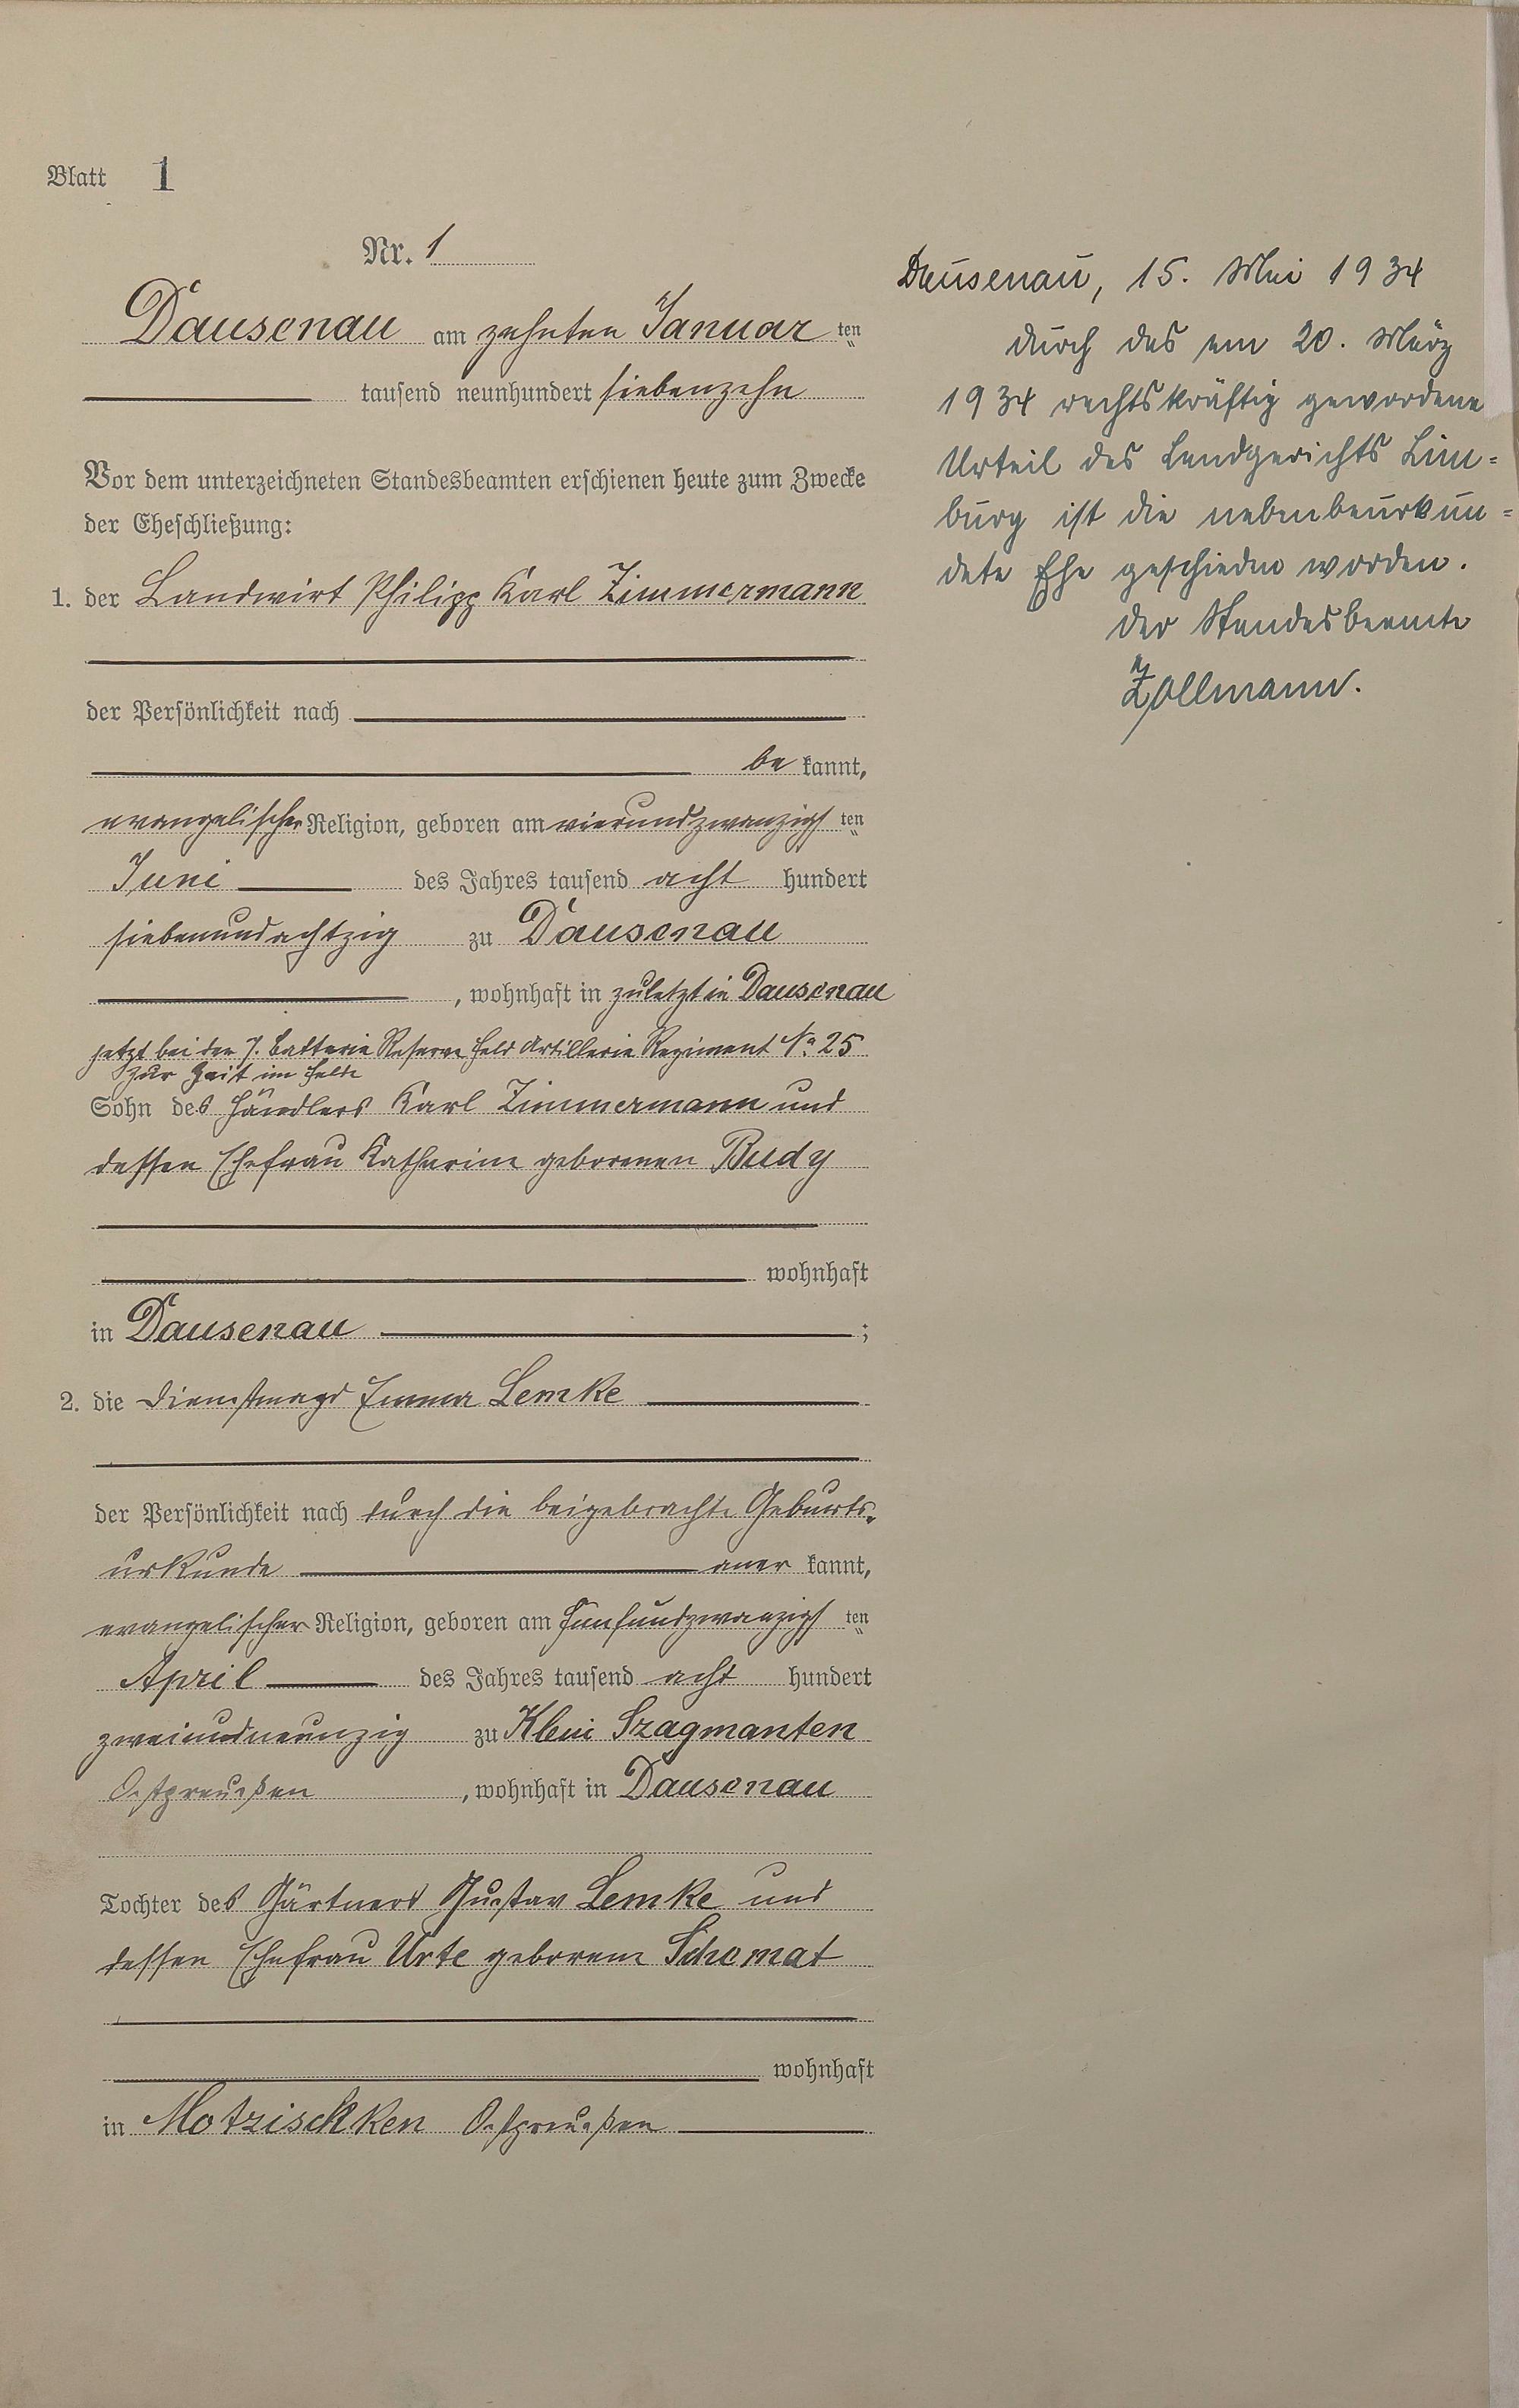 Blatt 1
Nr. 1
Dausenau am zehnten Januar ten
tausend neunhundert siebenzehn
Vor dem unterzeichneten Standesbeamten erschienen heute zum Zwecke
der Eheschließung:
1. der Landwirt Philipp Karl Zimmermann
der Persönlichkeit nach
be kannt,
evangelischer Religion, geboren am vierundzwanzigs ten
Juni des Jahres tausend acht hundert
siebenundachtzig zu Dausenau
, wohnhaft in zuletzt in Dausenau
jetzt bei der 7. Batterie Reserve Feld Artillerie Regiment No 25
zur Zeit im Felde
Sohn des Händlers Karl Zimmermann und
dessen Ehefrau Katharine geborenen Budy
wohnhaft
in Dausenau ;
2. die Dienstmagd Emma Lemke
der Persönlichkeit nach durch die beigebrachte Geburts-
urkunde aner kannt,
evangelischer Religion, geboren am fünfundzwanzigs ten
April des Jahres tausend acht hundert
zweiundneunzig zu Klein Szagmanten
Ostpreußen , wohnhaft in Dausenau
Tochter des Gärtners Gustav Lemke und
dessen Ehefrau Urte geborene Schemat
wohnhaft
in Motzischken Ostpreußen
Dausenau, 15. Mai 1934
Durch das am 20. März
1934 rechtskräftig gewordene
Urteil des Landgerichts Lim=
burg ist die nebenbeurkun=
dete Ehe geschieden worden.
Der Standesbeamte
Zollmann.